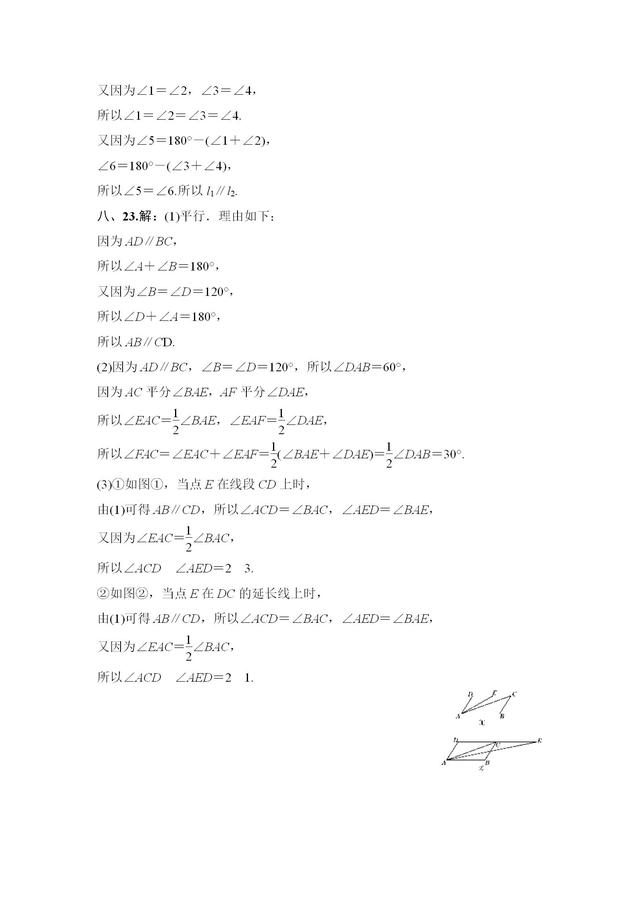 又因为∠1=∠2，∠3=∠4，
所以∠1=∠2=∠3=∠4.
又因为∠5=180°-(∠1+∠2)，
∠6=180°-(∠3+∠4)，
所以∠5=∠6.所以 l₁∥l₂.
八、23.解：(1)平行．理由如下：
因为 AD∥BC，
所以∠A+∠B=180°，
又因为∠B=∠D=120°，
所以∠D+∠A=180°，
所以 AB∥CD.
(2)因为 AD∥BC，∠B=∠D=120°，所以∠DAB=60°，
因为 AC 平分∠BAE，AF 平分∠DAE，
所以∠EAC=1/2∠BAE，∠EAF=1/2∠DAE，
所以∠FAC=∠EAC+∠EAF=1/2(∠BAE+∠DAE)=1/2∠DAB=30°.
(3)①如图①，当点 E 在线段 CD 上时，
由(1)可得 AB∥CD，所以∠ACD=∠BAC，∠AED=∠BAE，
又因为∠EAC=1/2∠BAC，
所以∠ACD ∠AED=2 3.
②如图②，当点 E 在 DC 的延长线上时，
由(1)可得 AB∥CD，所以∠ACD=∠BAC，∠AED=∠BAE，
又因为∠EAC=1/2∠BAC，
所以∠ACD ∠AED=2 1.
D E C
A B
D C E
A B